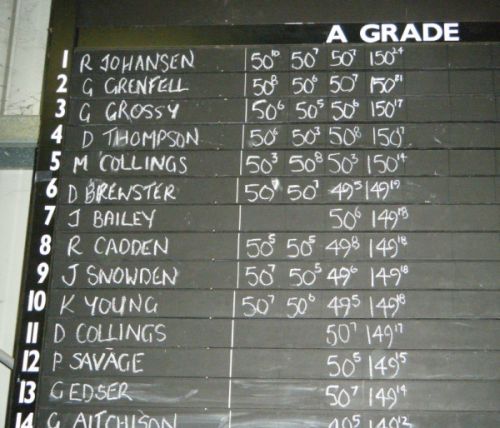 A GRADE
1 R JOHANSEN 50¹⁰ 50⁷ 50⁷ 150²⁴
2 G GRENFELL 50⁸ 50⁶ 50⁷ 150²¹
3 G GROSSY 50⁶ 50⁵ 50⁶ 150¹⁷
4 D THOMPSON 50⁶ 50³ 50⁸ 150¹⁷
5 M COLLINGS 50³ 50⁸ 50³ 150¹⁴
6 D BREWSTER 50⁷ 50⁷ 49⁵ 149¹⁹
7 J BAILEY 50⁶ 149¹⁸
8 R CADDEN 50⁵ 50⁵ 49⁸ 149¹⁸
9 J SNOWDEN 50⁷ 50⁵ 49⁶ 149¹⁸
10 K YOUNG 50⁷ 50⁶ 49⁵ 149¹⁸
11 D COLLINGS 50⁷ 149¹⁷
12 P SAVAGE 50⁵ 149¹⁵
13 G EDSER 50⁷ 149¹⁴
14 G AITCHISON 49⁵ 149¹²